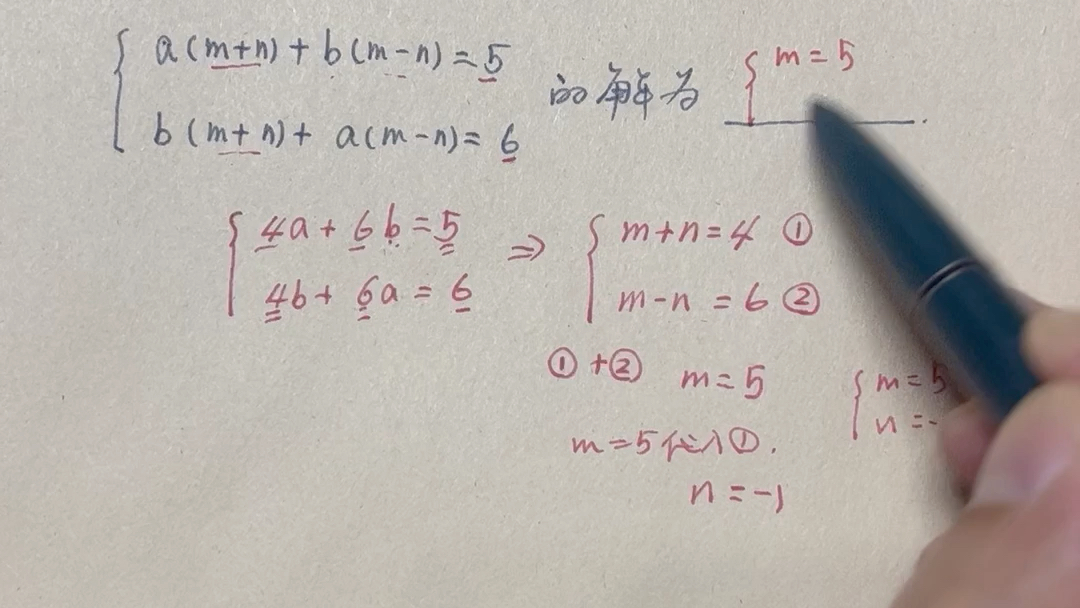 { a(m+n)+b(m-n)=5
b(m+n)+a(m-n)=6
的解为
{ m=5
{ 4a+6b=5
4b+6a=6
⇒
{ m+n=4 ①
m-n=6 ②
①+② m=5
m=5代入①.
n=-1
{ m=5
n=-